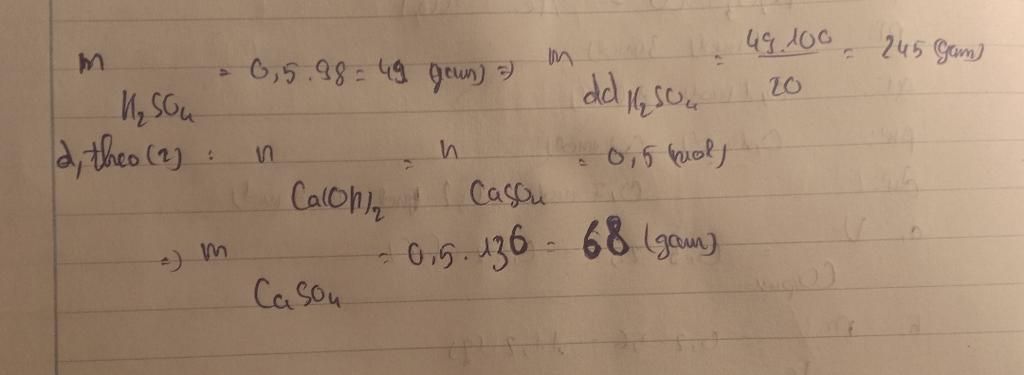 m H₂SO₄ = 0,5 . 98 = 49 (gam) => m dd H₂SO₄ = 49.100 / 20 = 245 (gam)
d, theo (2) : n Ca(OH)₂ = n CaSO₄ = 0,5 (mol)
=> m CaSO₄ = 0,5 . 136 = 68 (gam)